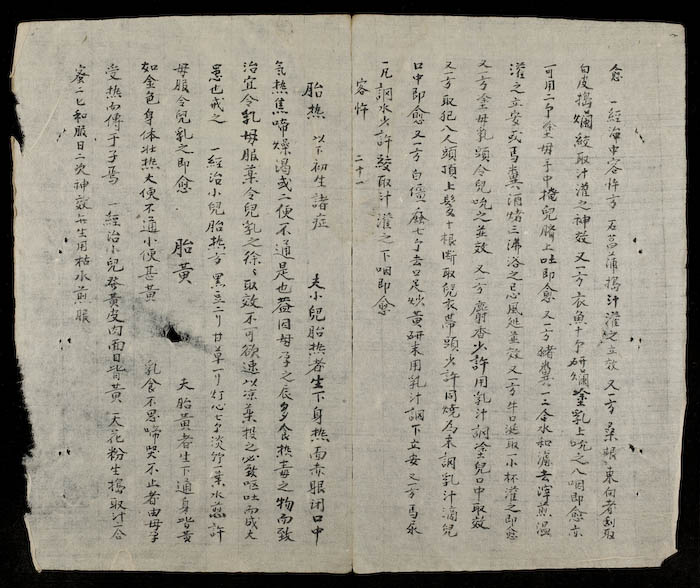 愈 一經治中客忤方 石菖蒲搗汁灌之立效 又一方 桑根東向者刮取
白皮搗爛絞取汁灌之神效 又一方 衣魚十个研爛塗乳上吮之入咽即愈亦
可用二个塗母手中掩兒臍上吐即愈 又一方 猪糞一二合水和濾去滓煎溫
灌之立安或馬糞酒燒三沸浴之忌風 並效 又一方 牛口涎取一小杯灌之即愈
又一方 塗母乳頭令兒吮之並效 又一方 麝香少許用乳汁調塗兒口中取效
又一方 取犯人頭頂上髮十根斷取兒衣帶頭少許同燒為末調乳汁滴兒
口中即愈 又一方 白僵 七个去口足炒黃研末用乳汁調下立安 又一方 馬
一凡調水少許絞取汁灌之下咽即愈
客忤 二十一
胎熱 以下初生諸症 夫小兒胎熱者生下身熱面赤眼閉口中
氣熱焦啼燥渴或二便不通是也蓋因母孕之辰多食熱毒之物而致
治宜令乳母服藥令兒乳之徐々取效不可欲速以涼藥投之必致嘔吐而成大
患也戒之 一經治小兒胎熱方 黑豆二刂甘草一刂灯心七 淡竹一葉水煎許
母服令兒乳之即愈 胎黃 夫胎黃者生下通身皆黃
如金色身体壯熱大便不通小便甚黃 乳食不思啼哭不止者由母孕
受熱而傳于子焉 一經治小兒發黃皮肉面目皆黃 天花粉生搗取汁一合
蜜二匕和服日二次神效無生用枯水煎服